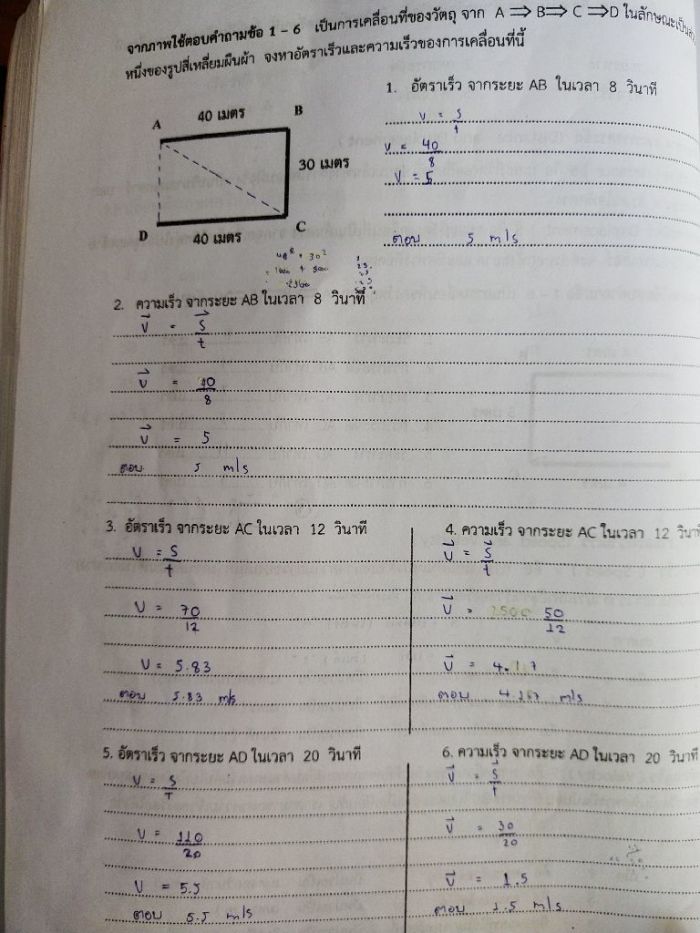 จากภาพใช้ตอบคำถามข้อ 1 – 6 เป็นการเคลื่อนที่ของวัตถุ จาก A ⇒ B ⇒ C ⇒ D ในลักษณะเป็น
หนึ่งของรูปสี่เหลี่ยมผืนผ้า จงหาอัตราเร็วและความเร็วของการเคลื่อนที่นี้
40 เมตร
A
B
30 เมตร
D
C
40 เมตร
40² + 30²
1. อัตราเร็ว จากระยะ AB ในเวลา 8 วินาที
v = s/t
v = 40/8
v = 5
ตอบ 5 m/s
2. ความเร็ว จากระยะ AB ในเวลา 8 วินาที
v⃗ = s⃗/t
v⃗ = 40/8
v⃗ = 5
ตอบ 5 m/s
3. อัตราเร็ว จากระยะ AC ในเวลา 12 วินาที
v = s/t
v = 70/12
v = 5.83
ตอบ 5.83 m/s
4. ความเร็ว จากระยะ AC ในเวลา 12
v⃗ = s⃗/t
v⃗ = 2500 50/12
v⃗ = 4.17
ตอบ 4.17 m/s
5. อัตราเร็ว จากระยะ AD ในเวลา 20 วินาที
v = s/T
v = 110/20
v = 5.5
ตอบ 5.5 m/s
6. ความเร็ว จากระยะ AD ในเวลา 20 วินาที
v⃗ = s⃗/t
v⃗ = 30/20
v⃗ = 1.5
ตอบ 1.5 m/s